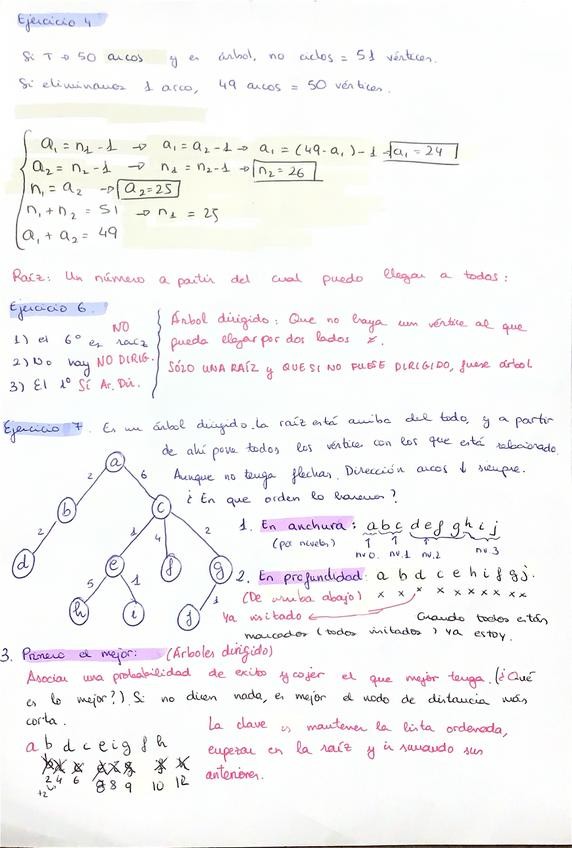 Ejercicio 4
Si T → 50 arcos y es árbol, no ciclos = 51 vértices.
Si eliminamos 1 arco, 49 arcos = 50 vértices.
a₁ = n₁ - 1 → a₁ = a₂ - 1 → a₁ = (49 - a₁) - 1 → a₁ = 24
a₂ = n₂ - 1 → n₁ = n₂ - 1 → n₂ = 26
n₁ = a₂ → a₂ = 25
n₁ + n₂ = 51 → n₁ = 25
a₁ + a₂ = 49
Raíz: Un número a partir del cual puedo llegar a todos:
Ejercicio 6.
1) el 6º es raíz NO
2) No hay NO DIRIG.
3) El 1º Sí Ar. Dir.
Árbol dirigido: Que no haya un vértice al que
pueda llegar por dos lados
SÓLO UNA RAÍZ y QUE SI NO FUESE DIRIGIDO, fuese árbol
Ejercicio 7. Es un árbol dirigido. La raíz está arriba del todo, y a partir
de ahí pone todos los vértice con los que está relacionado.
Aunque no tenga flechas. Dirección arcos ↓ siempre.
¿En que orden lo haremos?
a
2 6
b c
2 1 4 2
d e f g
5 1 1
h i j
1. En anchura: a b c d e f g h i j
(por niveles) nv0. nv.1 nv.2 nv.3
2. En profundidad: a b d c e h i f g j.
(De arriba abajo) x x x x x x x x x x
Ya visitado ← Cuando todos están
marcados (todos visitados) ya estoy.
3. Primero el mejor: (Árboles dirigido)
Asociar una probabilidad de exito y cojer el que mejor tenga. (¿Qué
es lo mejor?) Si no dicen nada, es mejor el nodo de distancia más
corta.
La clave es mantener la lista ordenada,
empezar en la raíz y ir sumando sus
anteriores.
a b d c e i g f h
2 4 6 8 8 9 10 12
+2